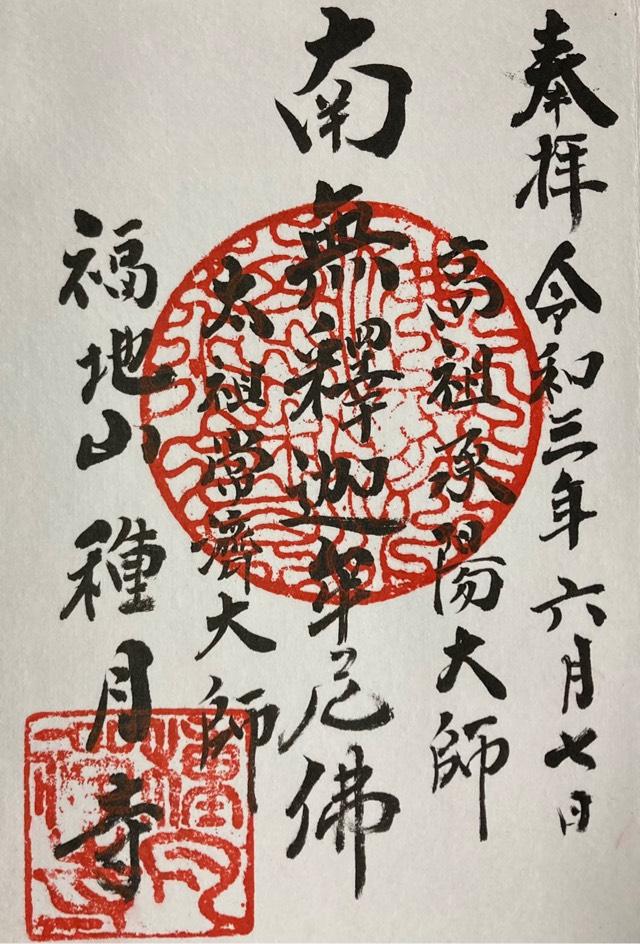 奉拝 令和三年六月七日
高祖承陽大師
南無釋迦牟尼佛
太祖常濟大師
福地山 種月寺